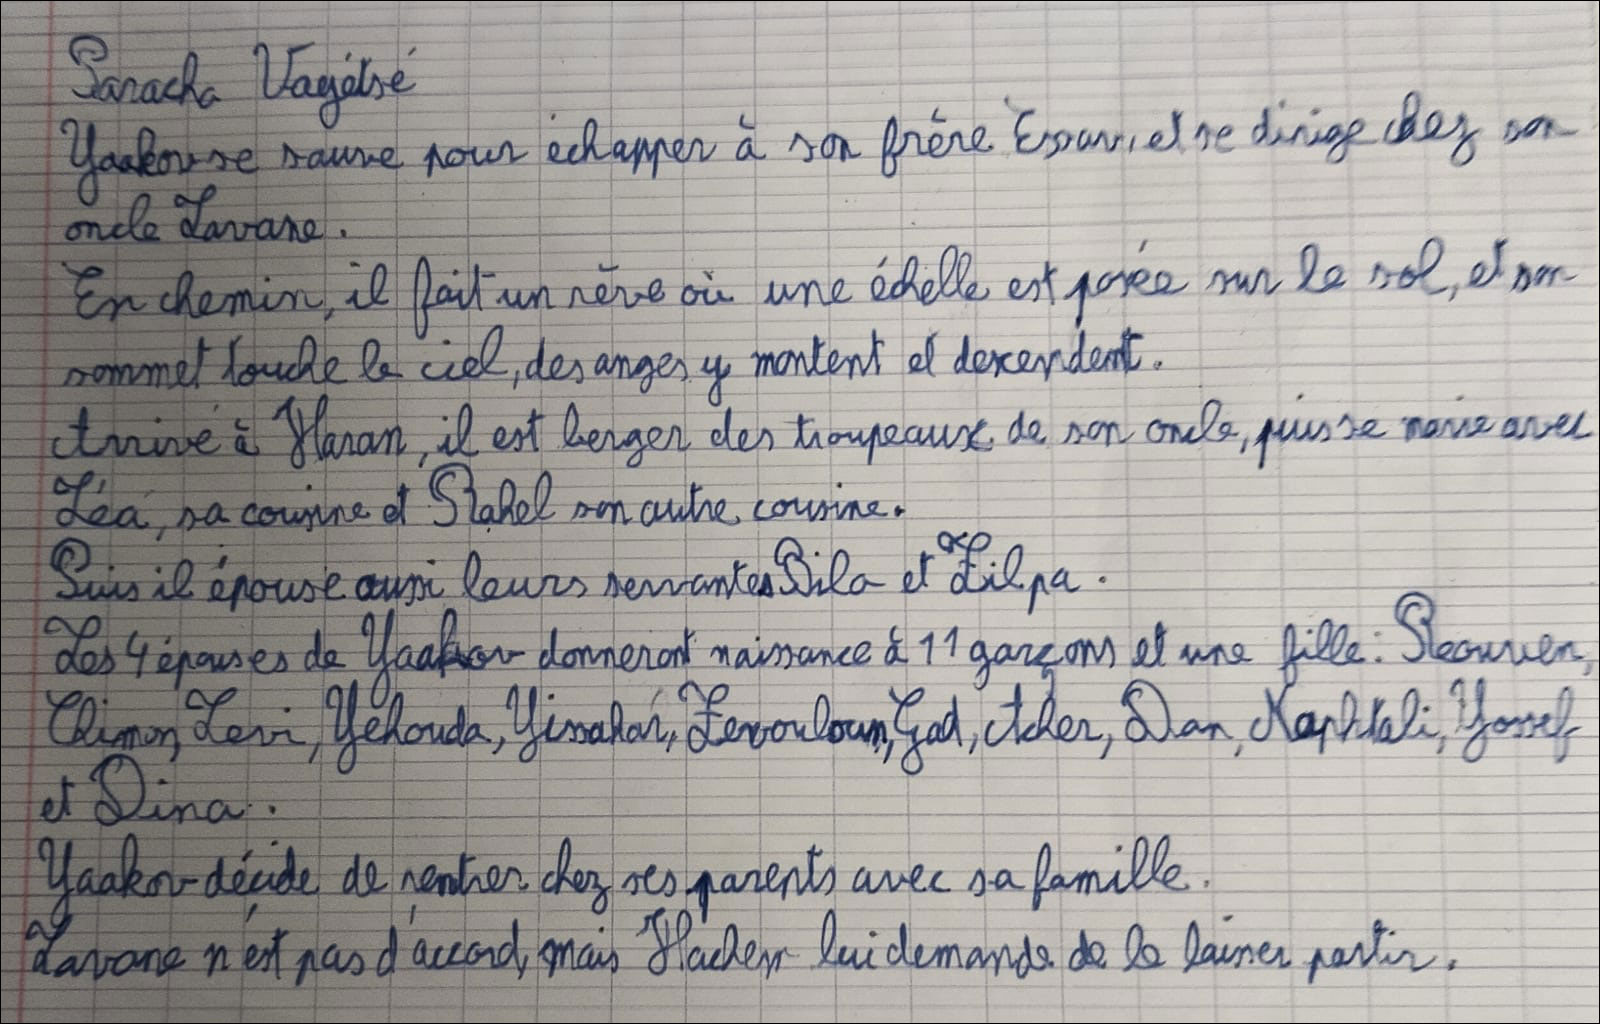 Paracha Vayétsé
Yaakov se sauve pour échapper à son frère Essav, et se dirige chez son
oncle Lavane.
En chemin, il fait un rêve où une échelle est posée sur le sol, et son
sommet touche le ciel, des anges y montent et descendent.
Arrivé à Haran, il est berger des troupeaux de son oncle, puis se marie avec
Léa, sa cousine et Rahel son autre cousine.
Puis il épouse aussi leurs servantes Bila et Zilpa.
Les 4 épouses de Yaakov donneront naissance à 11 garçons et une fille : Réouven,
Chimon, Levi, Yéhouda, Yissahar, Zevouloun, Gad, Acher, Dan, Naphtali, Yossef
et Dina.
Yaakov décide de rentrer chez ses parents avec sa famille.
Lavane n'est pas d'accord, mais Hachem lui demande de le laisser partir.